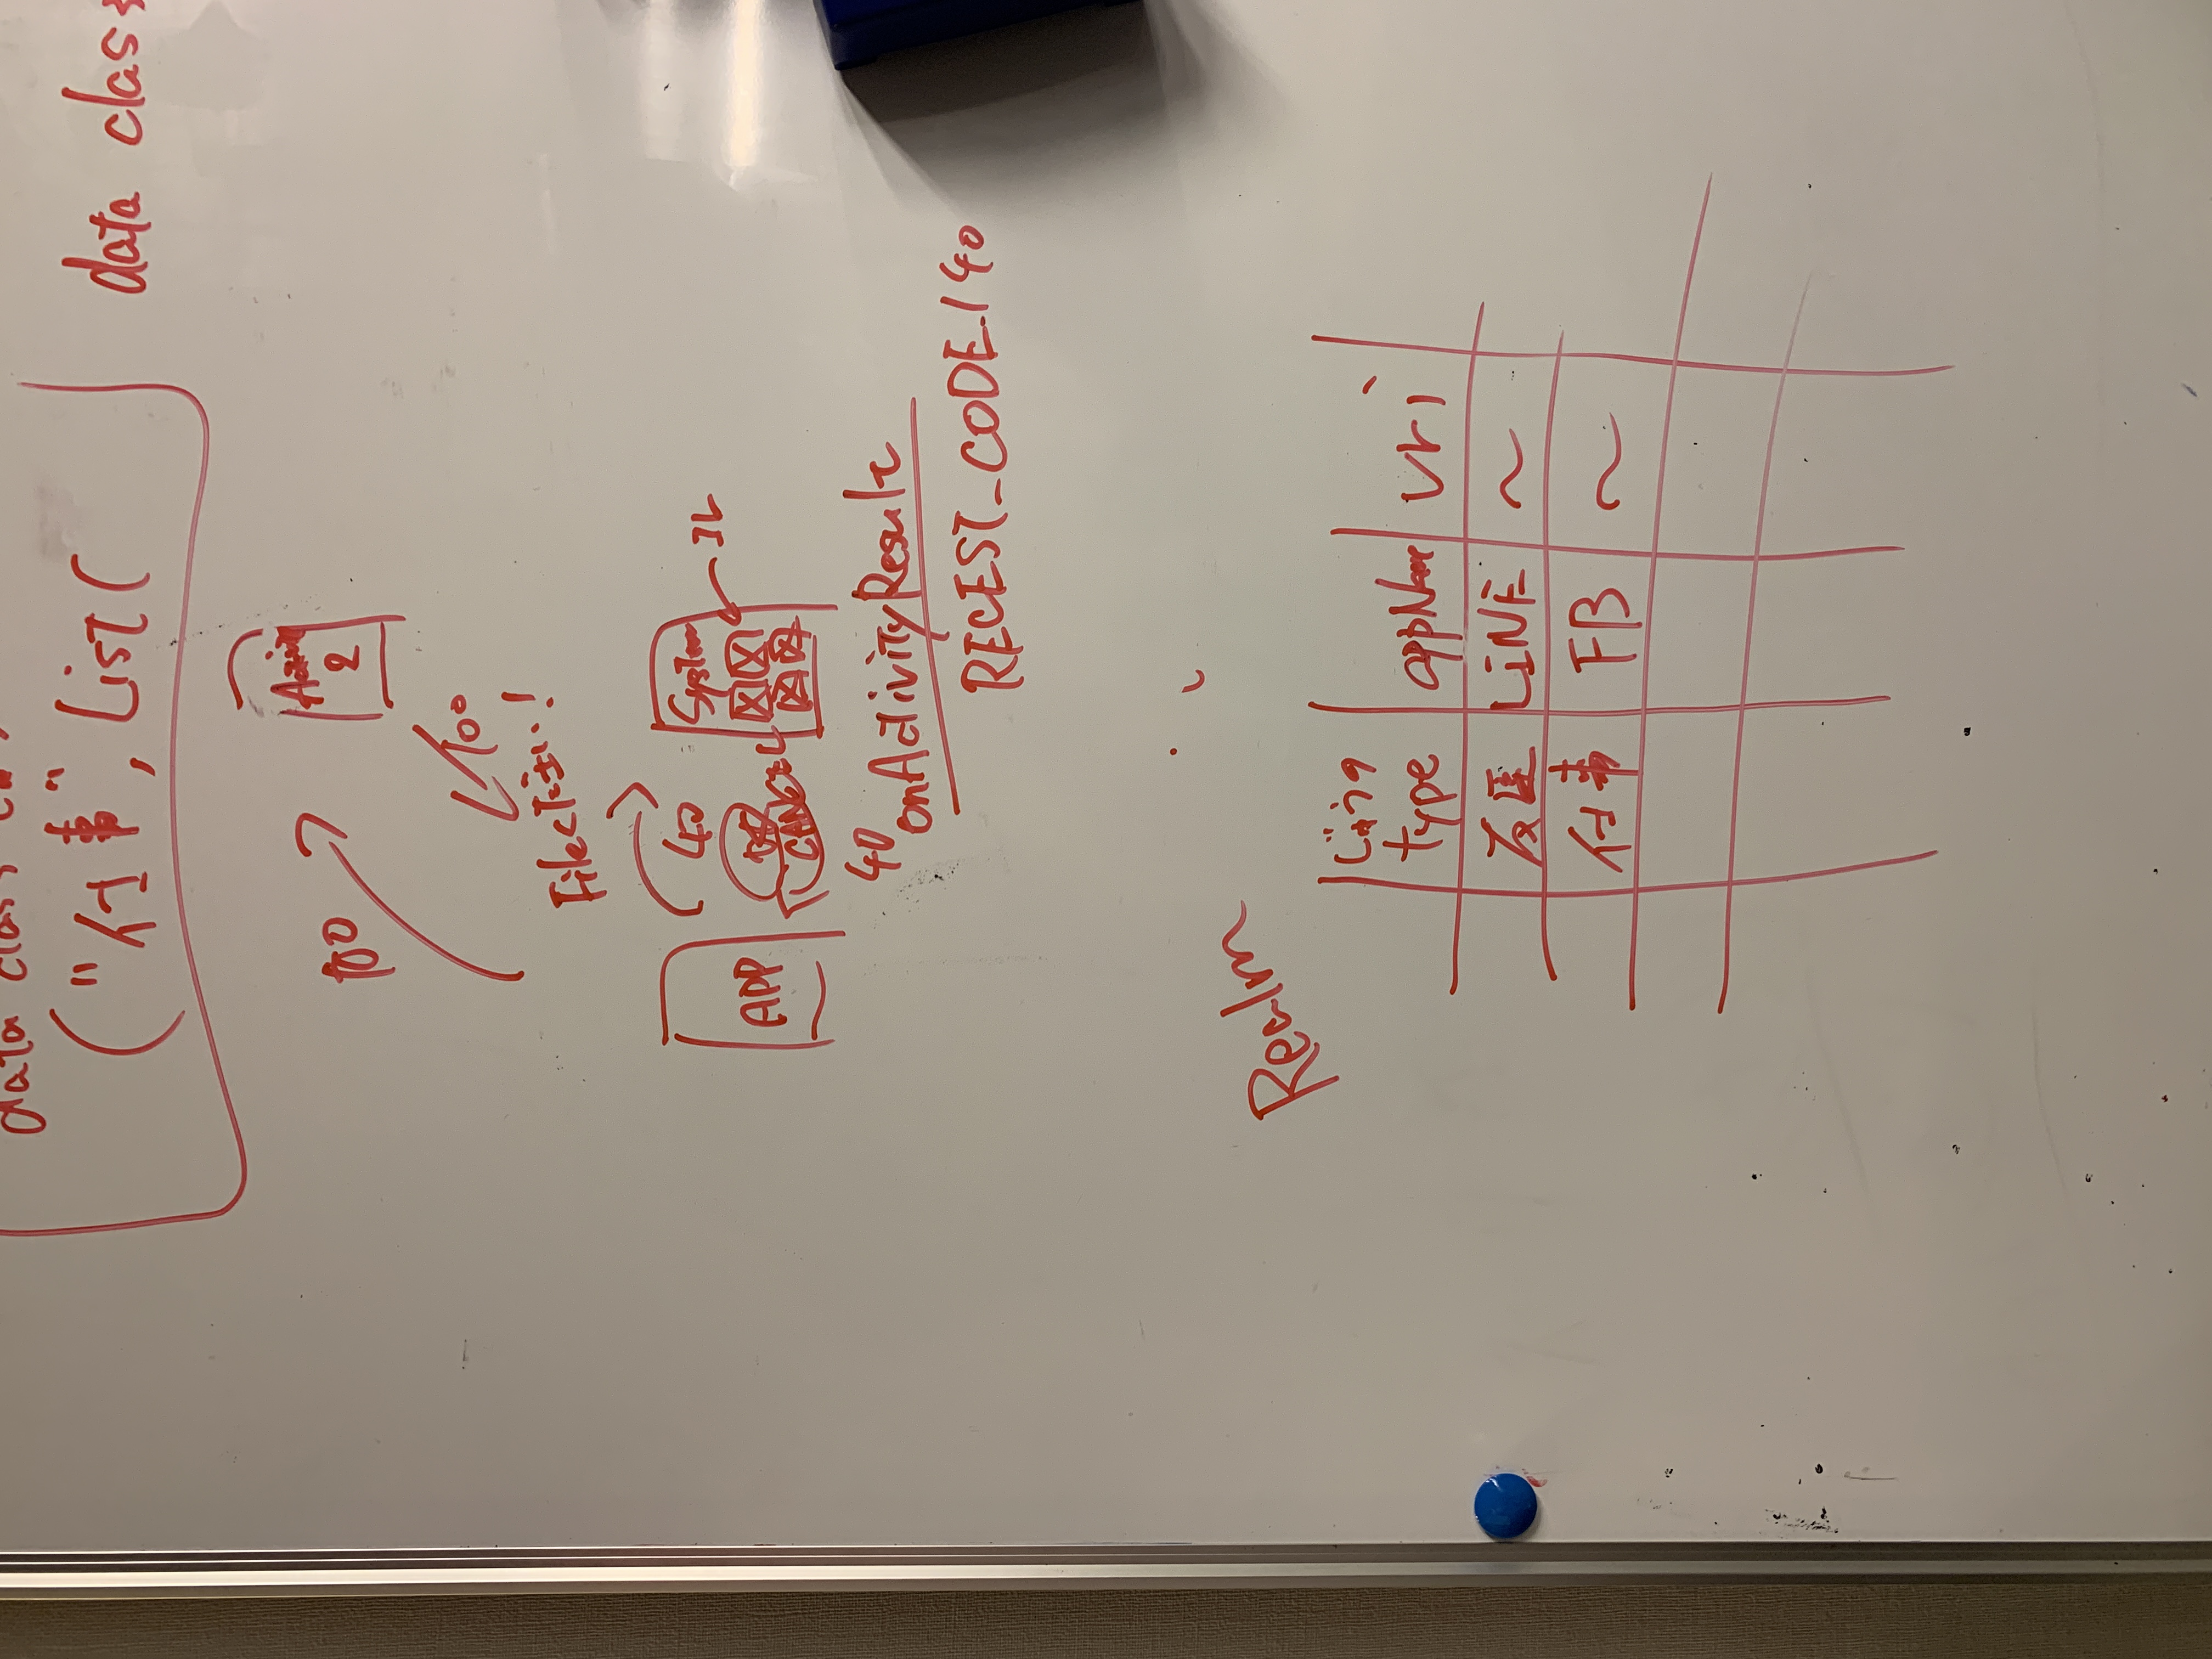 data class
("仕事", List(
data class
Activity
2
100
100
File
40
System
APP
OK
CANCEL
40
onActivityResult
RECEST_CODE.140
Realm
type appName uri
友達 LiNE ～
仕事 FB ～